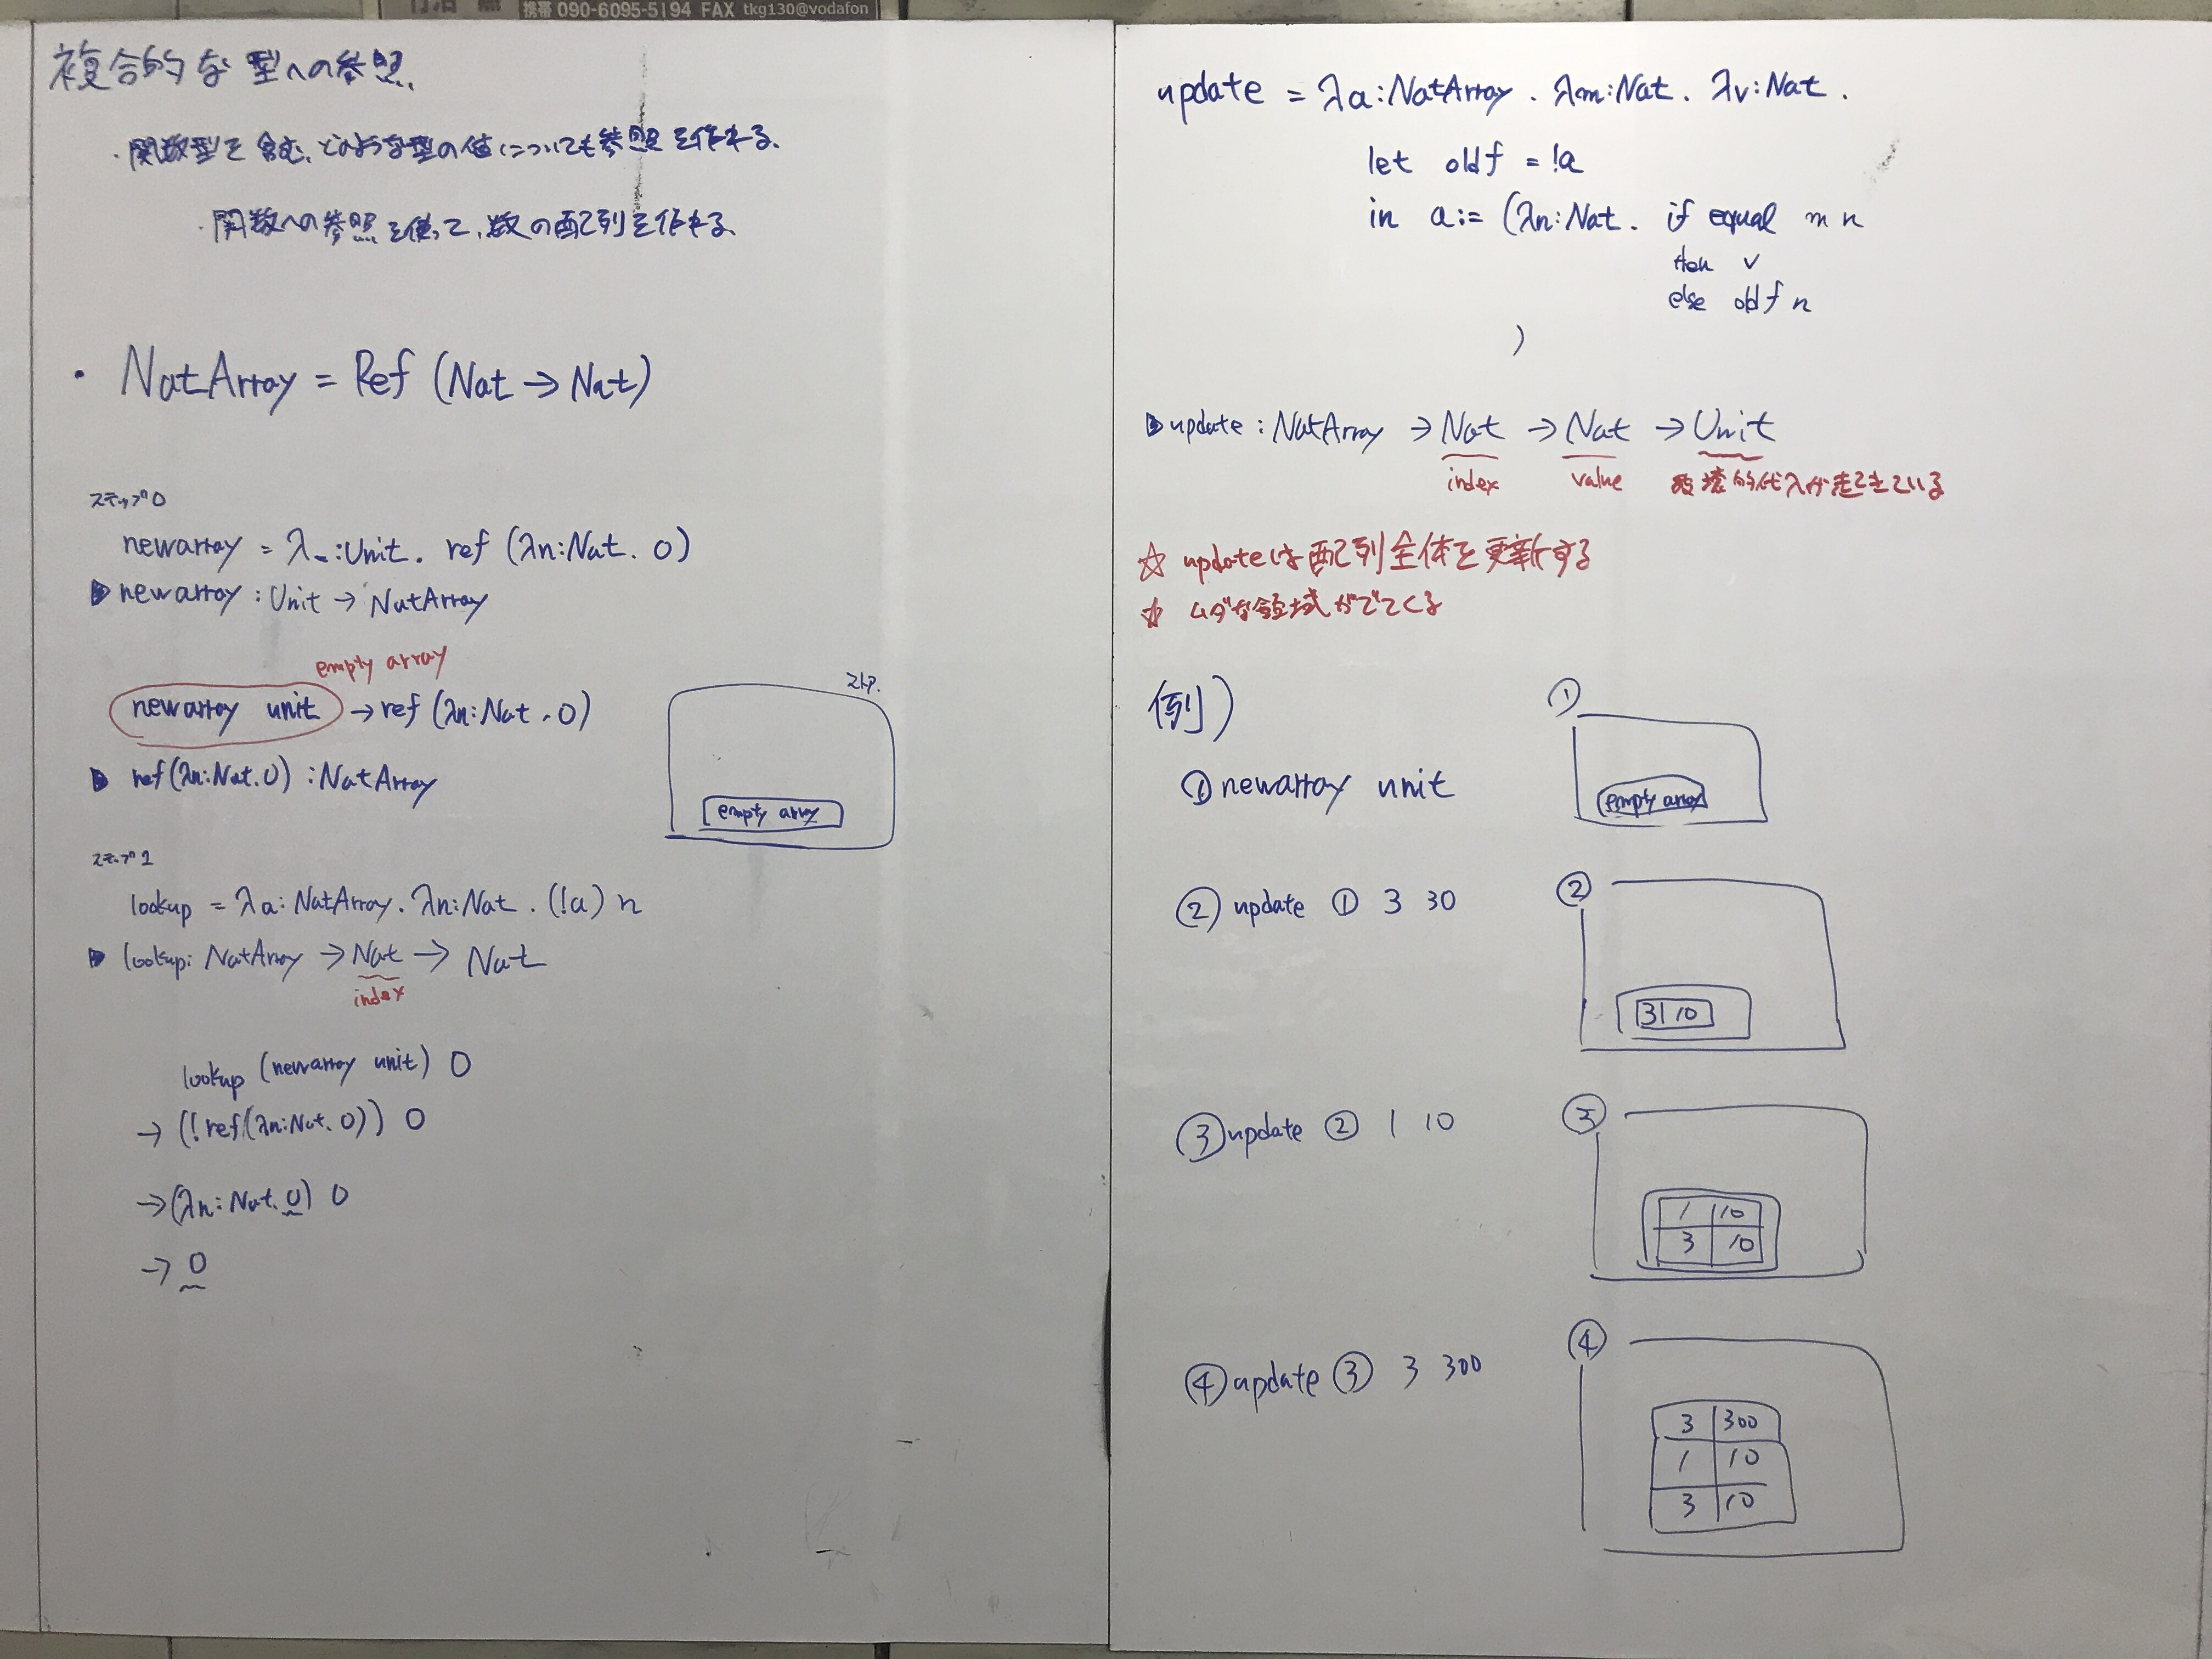 携帯 090-6095-5194 FAX tkg130@vodafon
複合的な型への参照.
・関数型を含む、どのような型の値についても参照を作れる.
・関数への参照を使って、数の配列を作れる.
・NatArray = Ref (Nat → Nat)
ステップ0
newarray = λ_:Unit. ref (λn:Nat. 0)
▶ newarray : Unit → NatArray
empty array
newarray unit → ref (λn:Nat. 0)
▶ ref(λn:Nat.0) : NatArray
ストア.
empty array
ステップ1
lookup = λa:NatArray. λn:Nat. (!a) n
▶ lookup: NatArray → Nat → Nat
index
lookup (newarray unit) 0
→ (!ref(λn:Nat. 0)) 0
→ (λn:Nat. 0) 0
→ 0
update = λa:NatArray. λm:Nat. λv:Nat.
let oldf = !a
in a:= (λn:Nat. if equal m n
then v
else oldf n
)
▶ update : NatArray → Nat → Nat → Unit
index value 破壊的代入が起きている
☆ updateは配列全体を更新する
☆ ムダな領域がでてくる
例)
① newarray unit
①
empty array
② update ① 3 30
②
3 10
③ update ② 1 10
③
1 10
3 10
④ update ③ 3 300
④
3 300
1 10
3 10